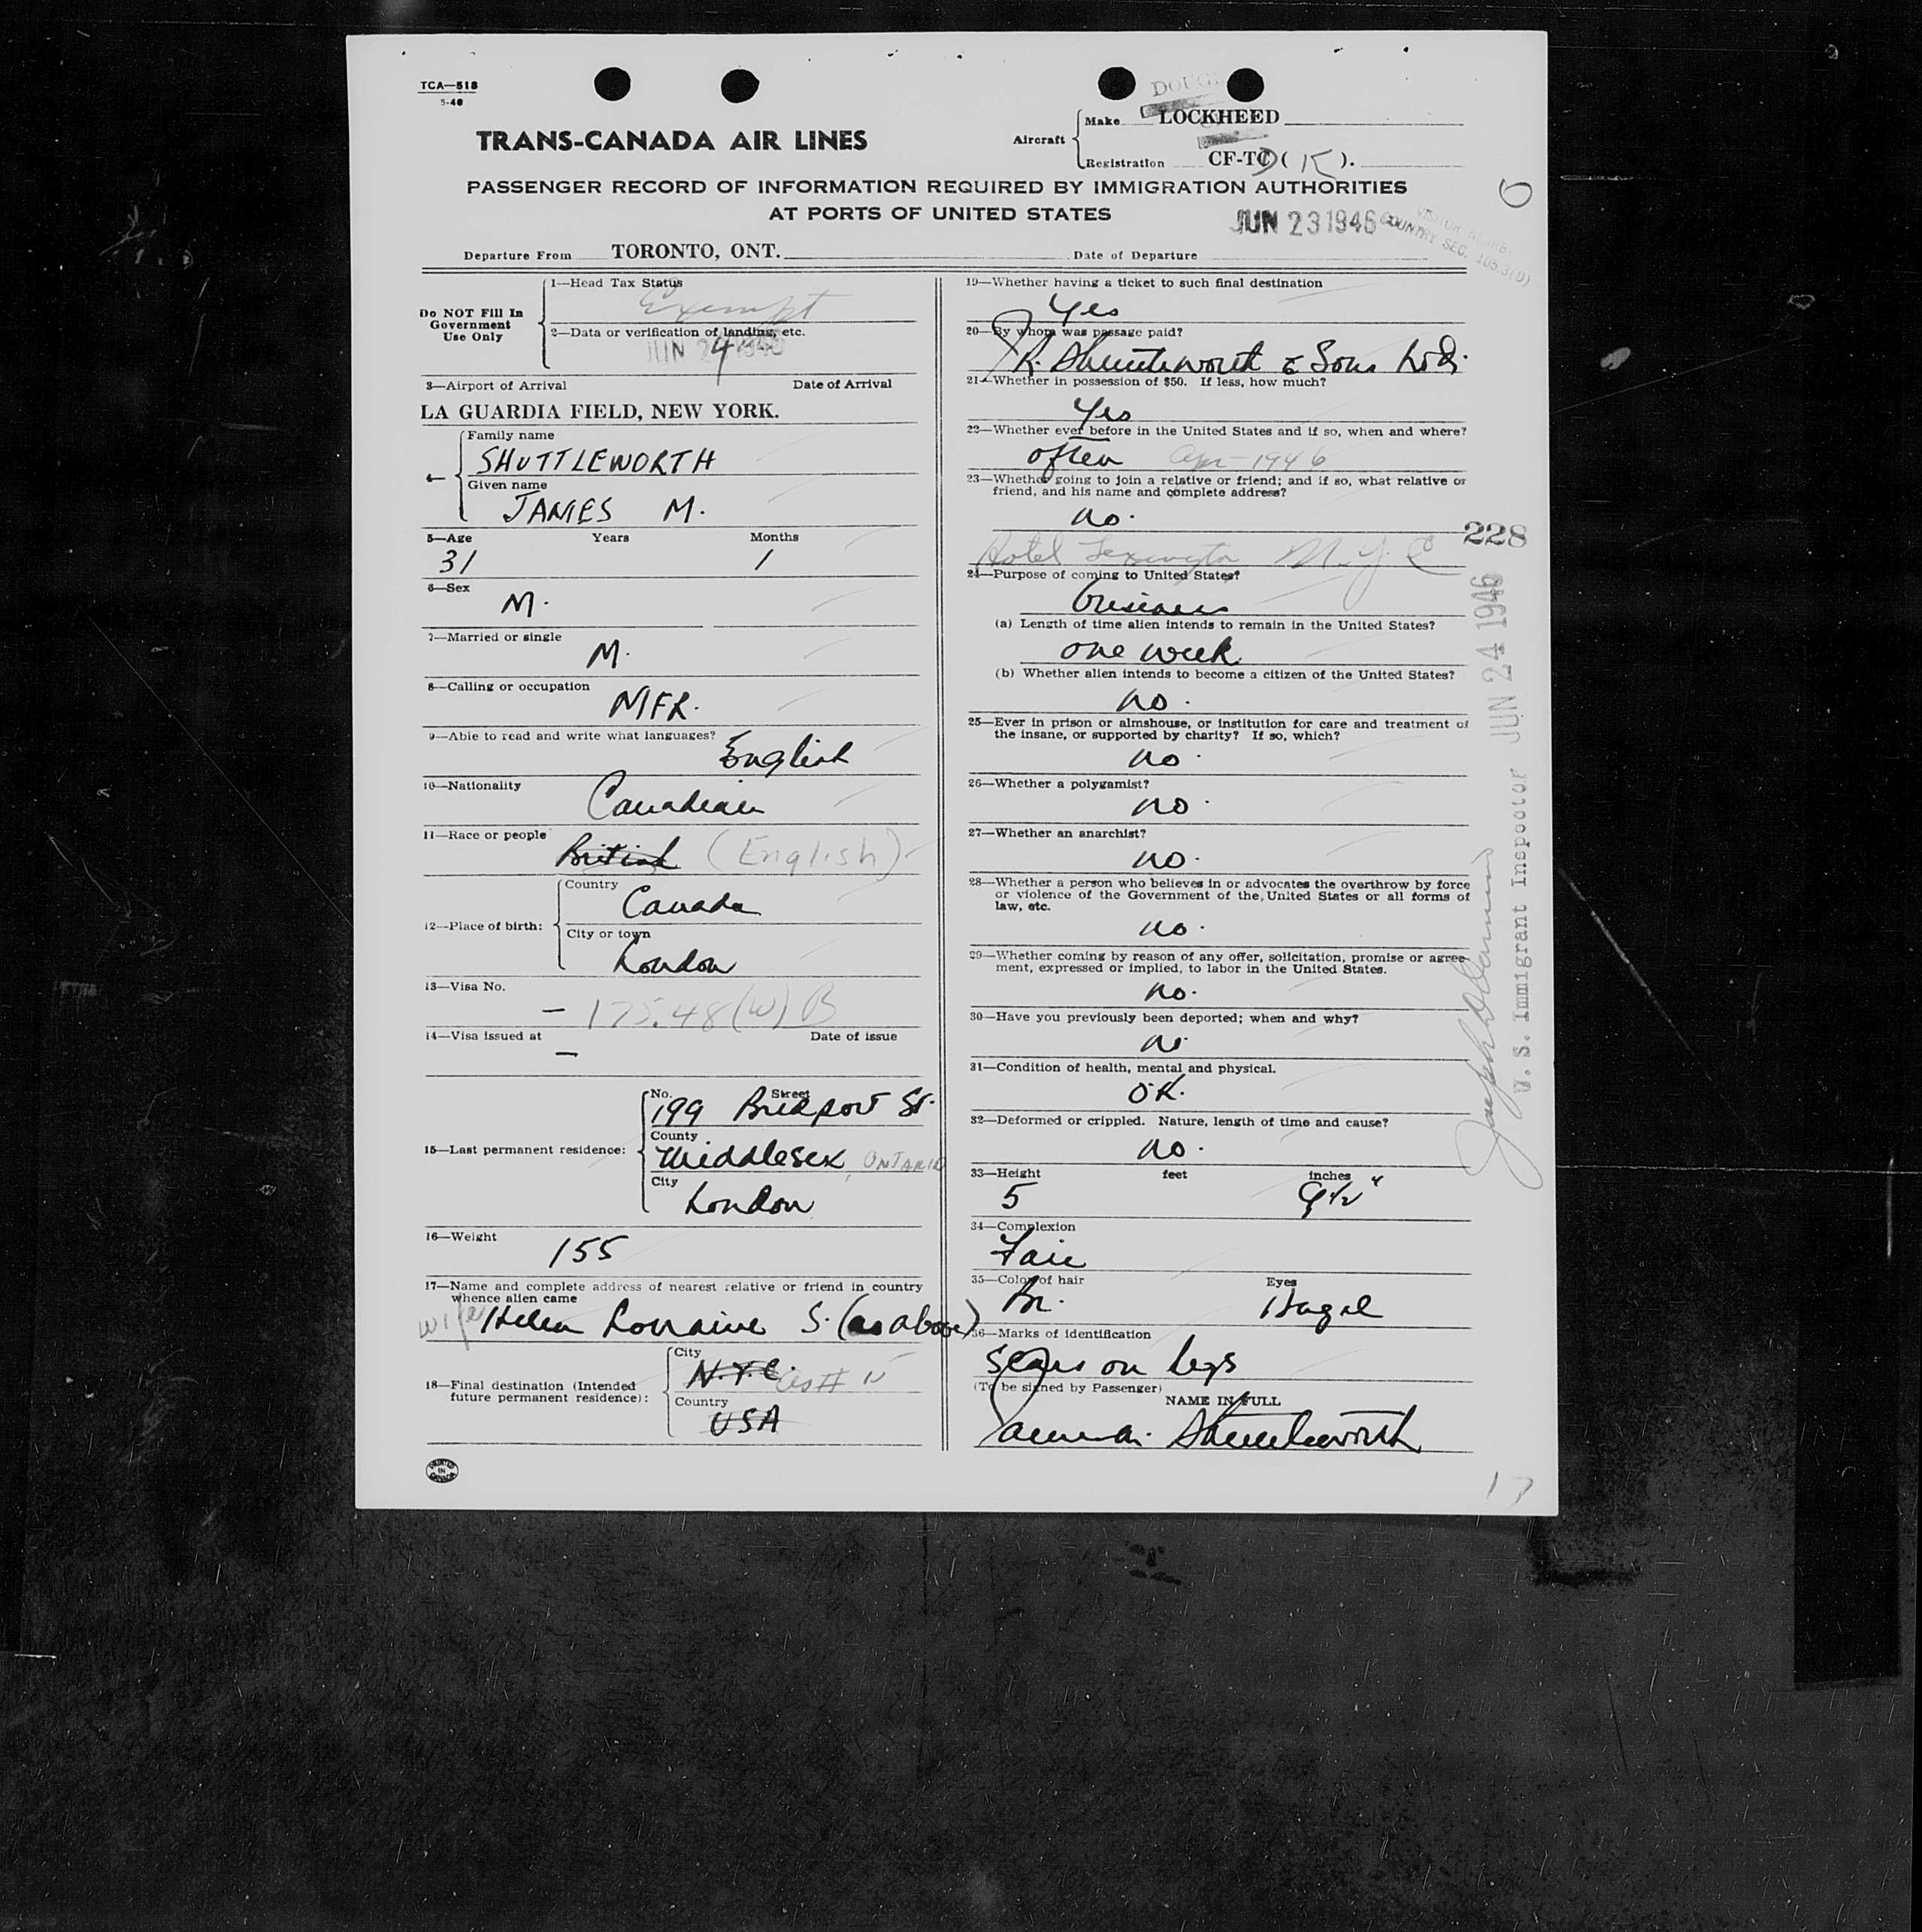 TCA—518
5-46
DOUG
TRANS-CANADA AIR LINES
Aircraft
Make LOCKHEED
Registration CF-TC ( K ).
PASSENGER RECORD OF INFORMATION REQUIRED BY IMMIGRATION AUTHORITIES
AT PORTS OF UNITED STATES
JUN 23 1946
COUNTRY SEC. 105.3(D)
Departure From TORONTO, ONT. Date of Departure
Do NOT Fill In
Government
Use Only
1—Head Tax Status
Exempt
2—Data or verification of landing, etc.
JUN 24
3—Airport of Arrival Date of Arrival
LA GUARDIA FIELD, NEW YORK.
4—
Family name
SHUTTLEWORTH
Given name
JAMES M.
5—Age Years Months
31 1
6—Sex
M.
7—Married or single
M.
8—Calling or occupation
MFR.
9—Able to read and write what languages?
English
10—Nationality
Canadian
11—Race or people
British (English)
12—Place of birth:
Country
Canada
City or town
London
13—Visa No.
— 175.48(W) B
14—Visa issued at Date of issue
—
15—Last permanent residence:
No. Street
199 Bridport St.
County
Middlesex, ONTARIO
City
London
16—Weight
155
17—Name and complete address of nearest relative or friend in country
whence alien came
wife Helen Lorraine S. (as above)
18—Final destination (Intended
future permanent residence):
City
N.Y.C. as # 15
Country
USA
PRINTED IN CANADA
19—Whether having a ticket to such final destination
Yes
20—By whom was passage paid?
R. Shuttleworth & Sons Ltd.
21—Whether in possession of $50. If less, how much?
Yes
22—Whether ever before in the United States and if so, when and where?
often Apr-1946
23—Whether going to join a relative or friend; and if so, what relative or
friend, and his name and complete address?
no.
Hotel Lexington N.Y.C
228
24—Purpose of coming to United States?
Business
(a) Length of time alien intends to remain in the United States?
one week
(b) Whether alien intends to become a citizen of the United States?
no.
25—Ever in prison or almshouse, or institution for care and treatment of
the insane, or supported by charity? If so, which?
no.
26—Whether a polygamist?
no.
27—Whether an anarchist?
no.
28—Whether a person who believes in or advocates the overthrow by force
or violence of the Government of the United States or all forms of
law, etc.
no.
29—Whether coming by reason of any offer, solicitation, promise or agree-
ment, expressed or implied, to labor in the United States.
no.
30—Have you previously been deported; when and why?
no
31—Condition of health, mental and physical.
O.K.
32—Deformed or crippled. Nature, length of time and cause?
no.
33—Height feet inches
5 9½"
34—Complexion
Fair
35—Color of hair Eyes
Br. Hazel
36—Marks of identification
Scars on legs
(To be signed by Passenger)
NAME IN FULL
James M. Shuttleworth
JUN 24 1946
U. S. Immigrant Inspector
17